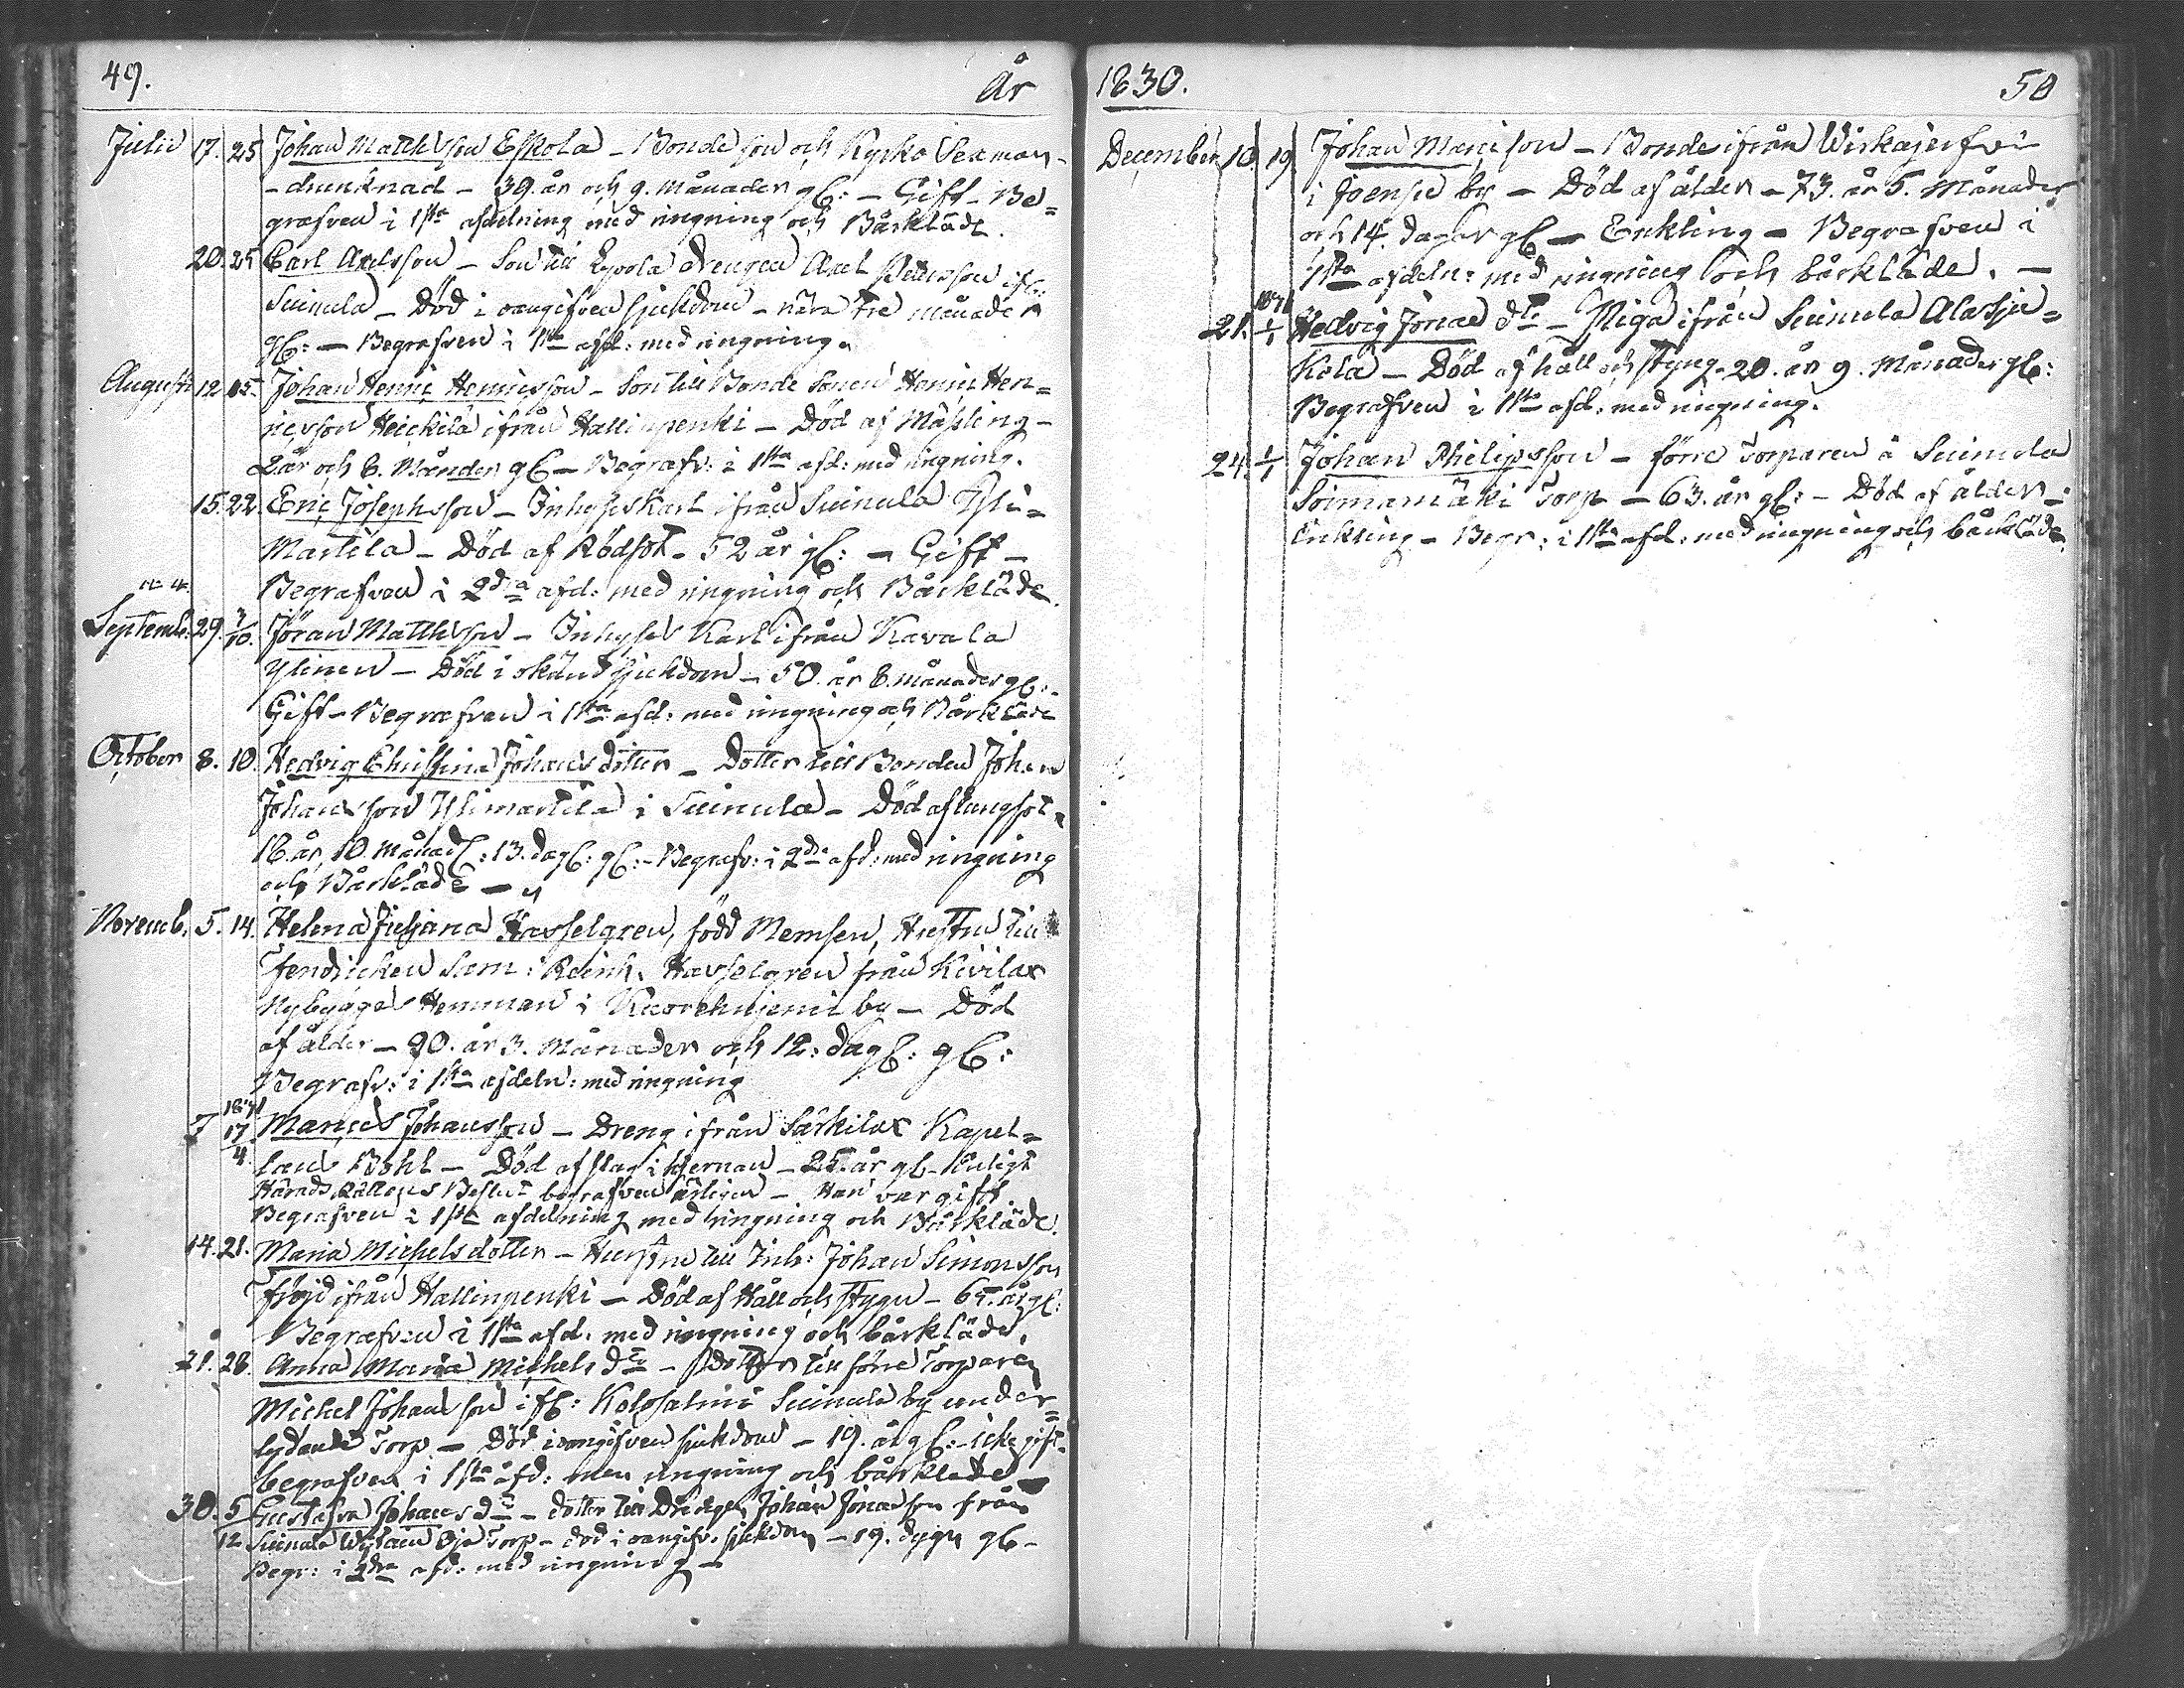 49. År
Julii 17. 25 Johan Matthsson Eskola – Bonde son och Kyrko Sexman –
– drunknad – 39. år och 9. Månader gl: – Gift – Be=
grafven i 1sta afdelning med ringning och Bårkläde.
20. 25 Carl Axelsson – Son till Eyvola drengen Axel Pettersson ifr:
Suinula – Död i oangifven sjukdom – nära tre månader
gl: – Begrafven i 1sta afd: med ringning.
Augusti 12. 15. Johan Henric Henricsson – Son till Bonde Sonen Henric Hen=
ricsson Heickilä ifrån Hallinpenki – Död af Mäßling –
2 år och 8. Månder gl – Begrafv: i 1sta afd: med ringning.
15. 22. Eric Josephsson – Inhyses Karl ifrån Suinula Yli=
Martila – Död af Rödsot – 52 år gl: – Gift –
Begrafven i 2dra afd: med ringning och Bårkläde.
Septemb. 29. 3/10. Jöran Matthsson – Inhyses Karl ifrån Kavala
Ylinen – Död i okänd sjukdom – 50. år 8. månader gl: –
Gift – Begrafven i 1sta afd: med ringning och Bårkläde
October 8. 10. Hedvig Christina Johans dotter – Dotter till Bonden Johan
Johansson Ylimartila i Suinula – Död af lungsot –
18. år, 10. Månad: 13. dag: gl: – Begrafv: i 2dra afd: med ringning
och Bårkläde –
Novemb. 5. 14. Helena Juliana Hasselgren, född Memsen, Hustru till
Fendricken Sam: Reinh. Hasselgren från Kivilax
Nybygges Hemman i Kuorehujerni by – Död
af ålder – 90. år 3. Månader och 12: dag: gl:
Begrafv: i 1sta afdeln: med ringning
7 1831 17/4 Mances Johansson – Dreng ifrån Särkilax Kapel=
lans Bohl – Död af slag i hjernan – 25. år gl – Enligt
Härads Rättens Beslut begrafven ärligen – Han var gift.
Begrafven i 1sta afdelning med ringning och Bårkläde.
14. 21. Maria Michelsdotter – Hustru till Inh: Johan Simonsson
Fröjd ifrån Hallinpenki – Död af Håll och Stygn – 65. år gl:
Begrafven i 1sta afd. med ringning och bårkläde.
21. 28. Anna Maria Michels dtr – Dotter till förre Torparen
Michel Johansson ifr: Kolosalmi Suinula by under=
lydande Torp – Död i oangifven sjukdom – 19. år gl: – icke gift.
begrafven i 1sta afd: med ringning och bårkläde –
30. 5/12 Gustafva Johans dtr – dotter till Drengen Johan Jonasson från
Suinula Oja Torp – död i oangifv. sjukdom – 19. dygn gl –
Begr: i 2dra afd: med ringning –
1830. 50
December 10. 19. Johan Mancsson – Bonde ifrån Wirkajerfvi
i Joensu by – Död af ålder – 73. år 5. Månader
och 14. dagar gl – Enkling – Begrafven i
1sta afdeln: med ringning och bårkläde. –
21. 1831 1/1 Hedvig Jonae dtr – Piga ifrån Suinula Alassju=
kola – Död af håll och styng – 20. år 9. Månader gl:
Begrafven i 1sta afd. med ringning.
24. 1/1 Johan Philipsson – förre Torparen å Suinula
Soimamäki Torp – 63. år gl: – Död af ålder –
Enkling – Begr: i 1sta afd: med ringning och bårkläde.